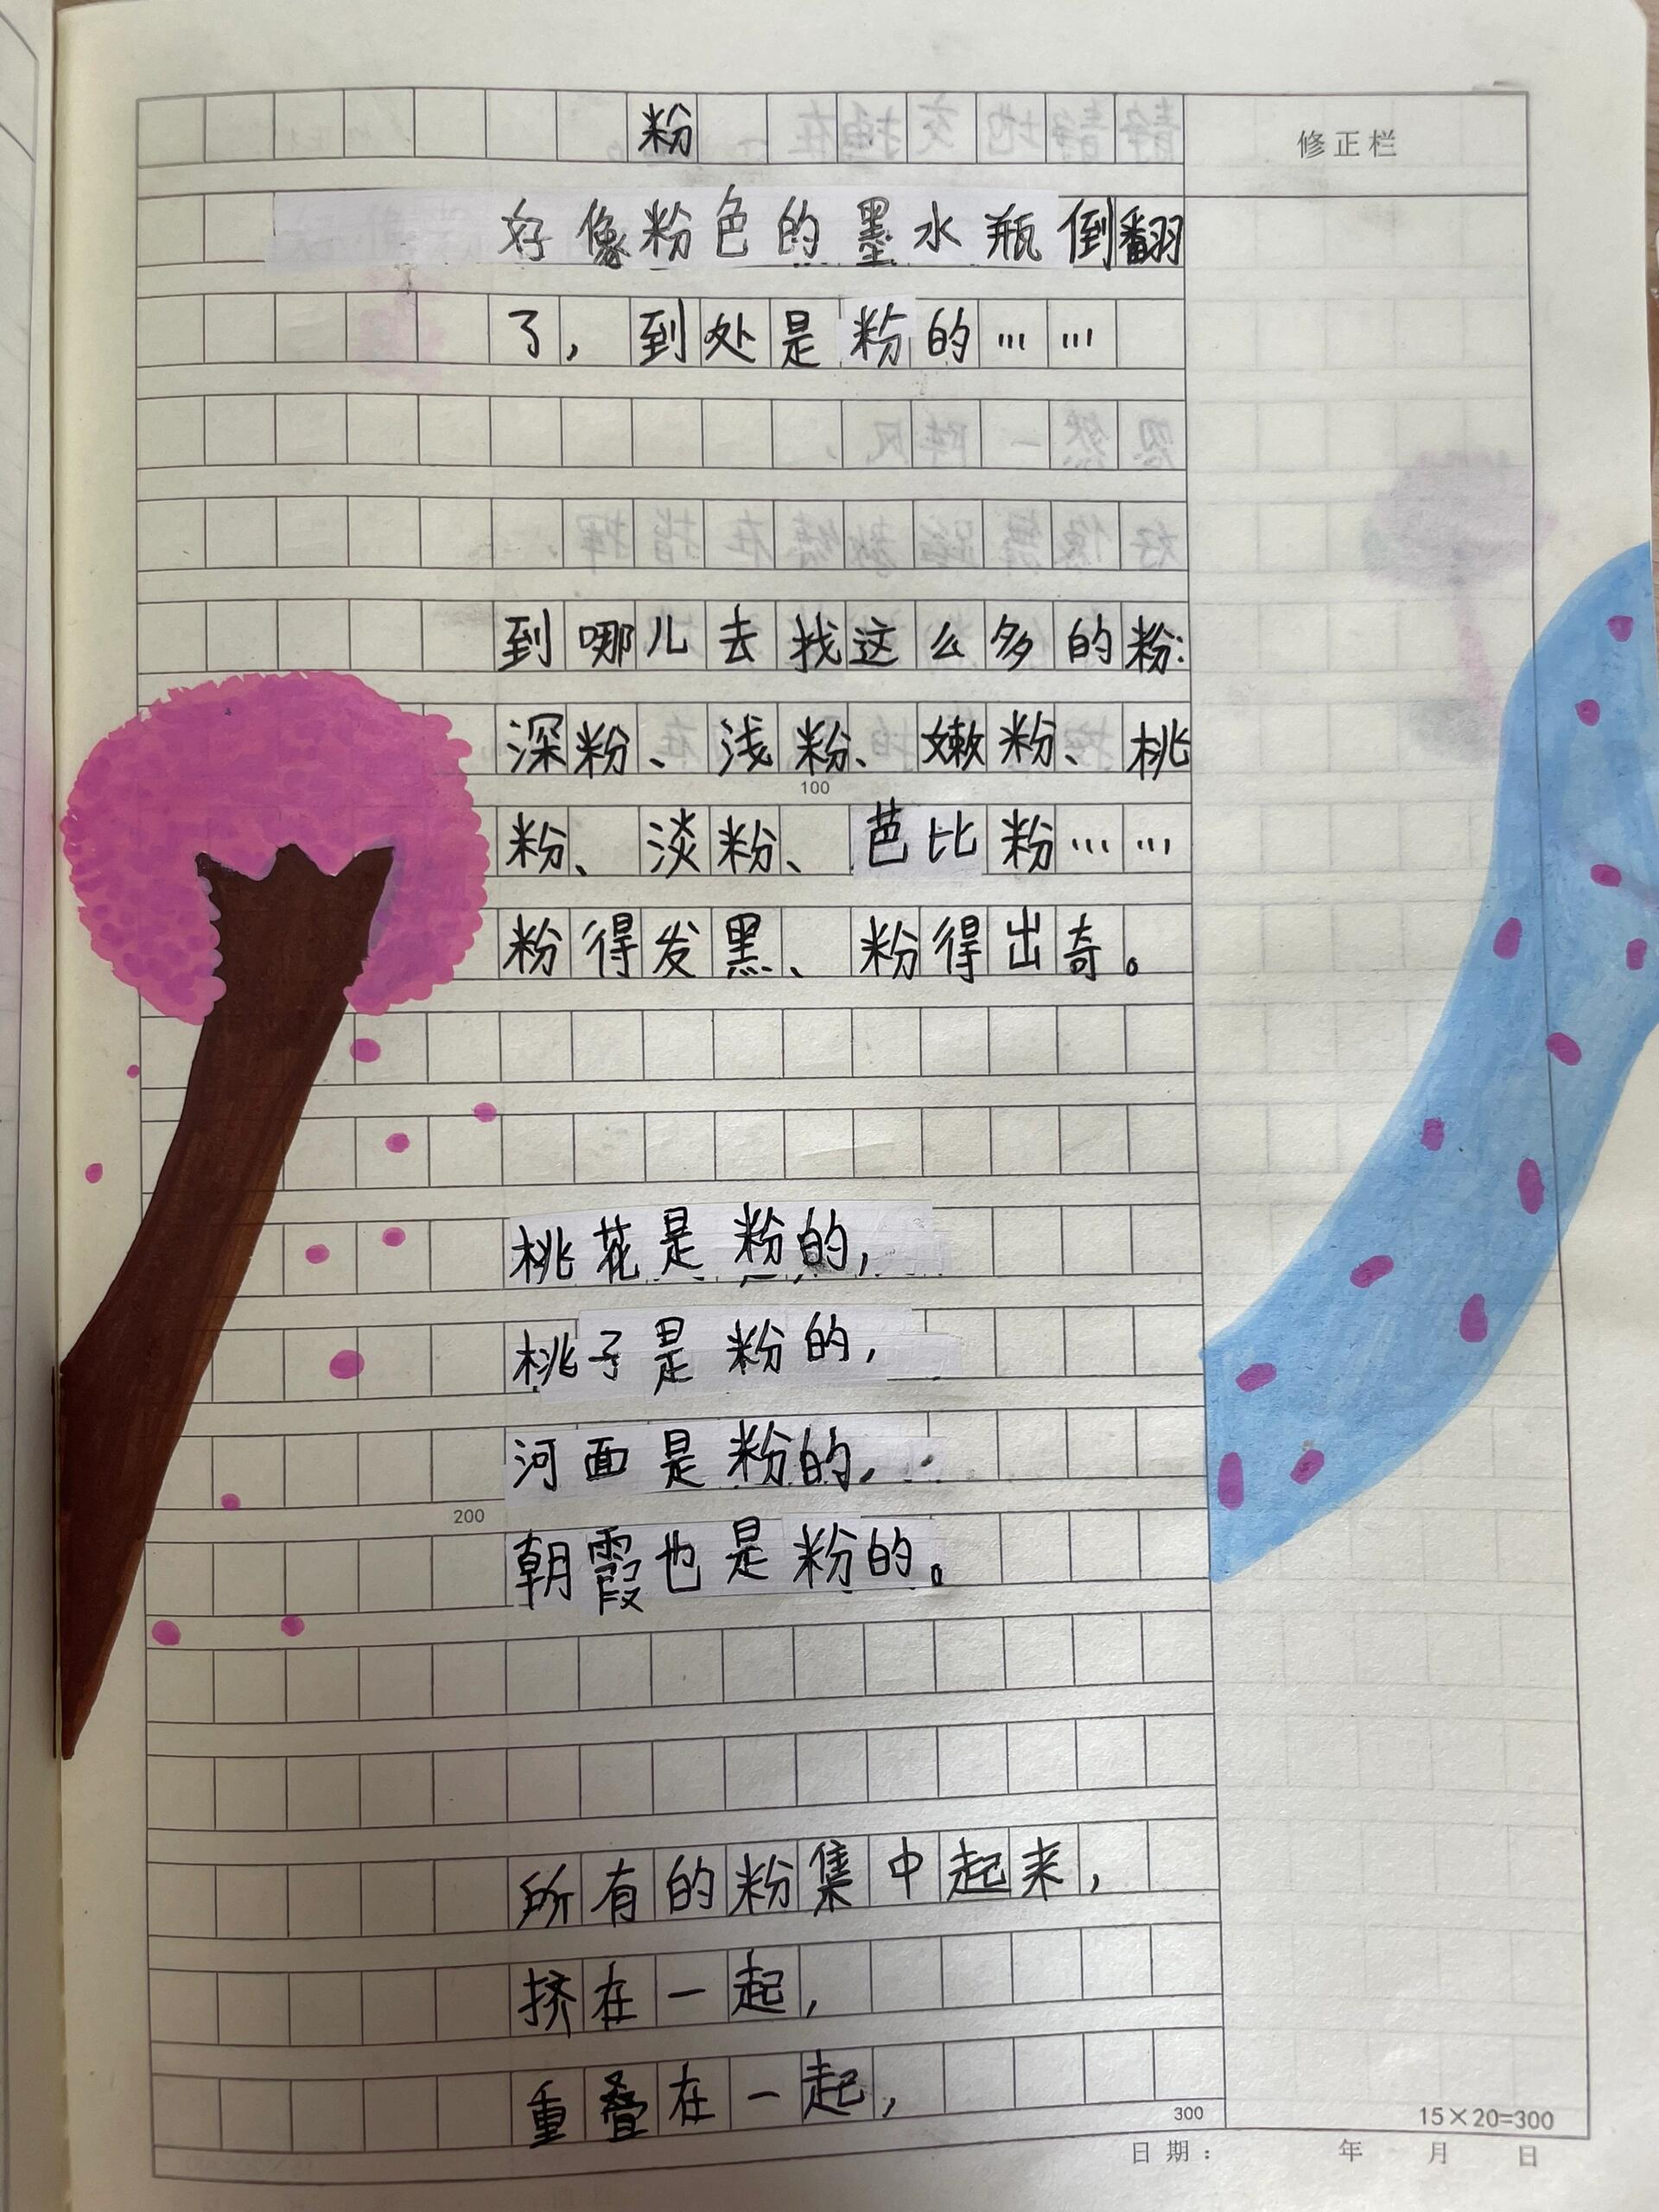 粉
修正栏
好像粉色的墨水瓶倒翻
了，到处是粉的……
到哪儿去找这么多的粉：
深粉、浅粉、嫩粉、桃
100
粉、淡粉、芭比粉……
粉得发黑、粉得出奇。
桃花是粉的，
桃子是粉的，
河面是粉的，
200
朝霞也是粉的。
所有的粉集中起来，
挤在一起，
重叠在一起，
300
15×20=300
日期： 年 月 日